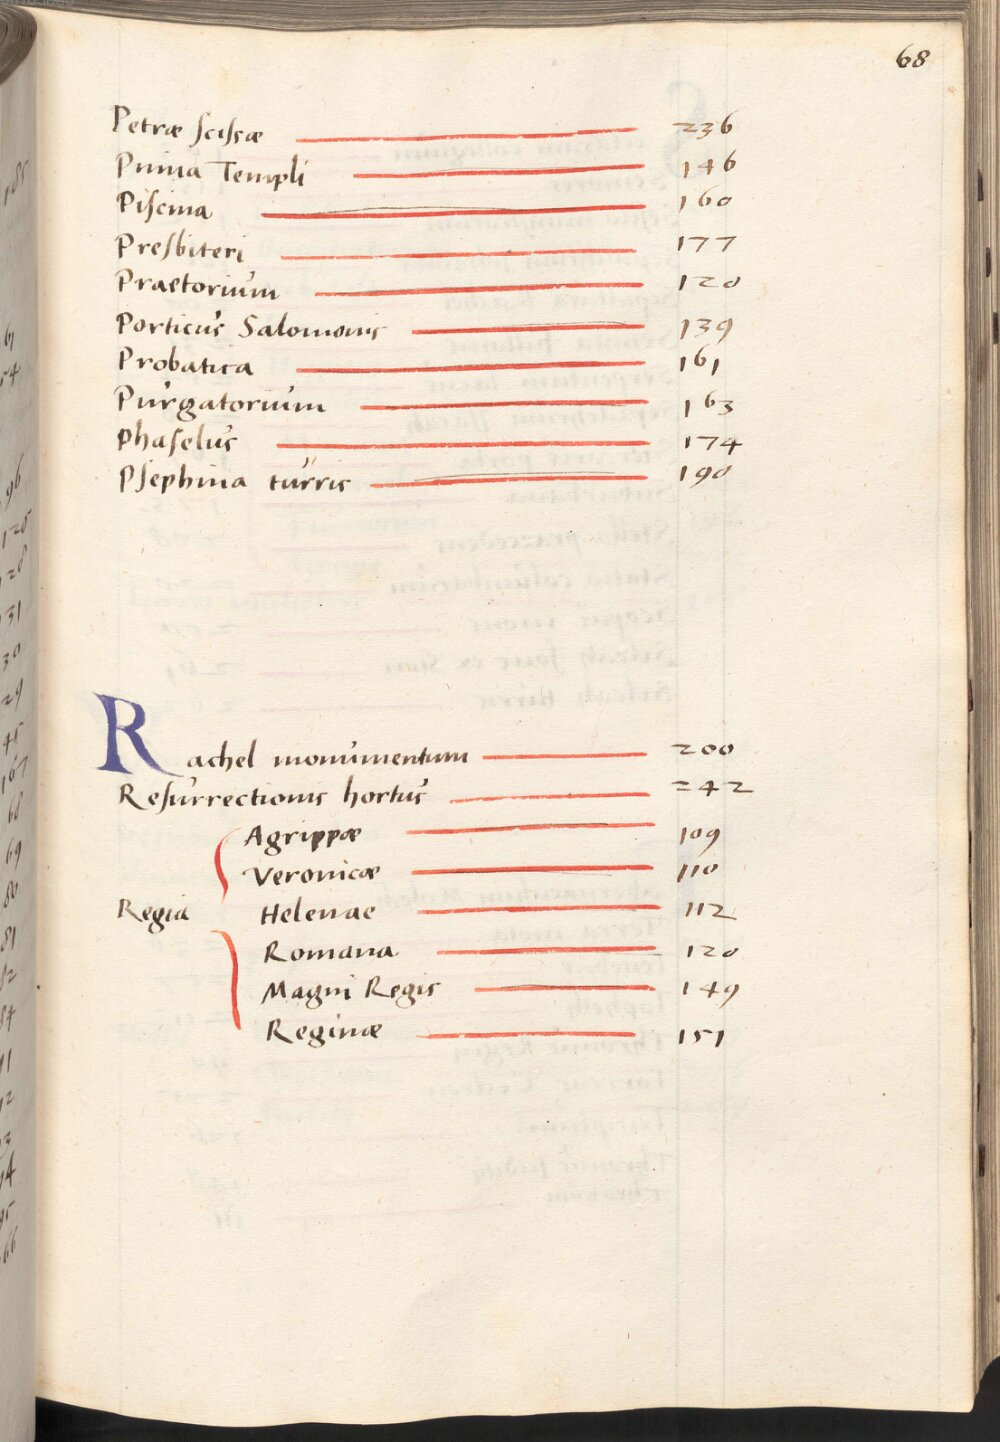 68
Petræ scissæ 236
Pinna Templi 146
Piscina 160
Presbiteri 177
Praetorium 120
Porticus Salomonis 139
Probatica 161
Purgatorium 163
phaselus 174
Psephina turris 190
Rachel monumentum 200
Resurrectionis hortus 242
Agrippæ 109
Veronicæ 110
Regia Helenae 112
Romana 120
Magni Regis 149
Reginæ 151